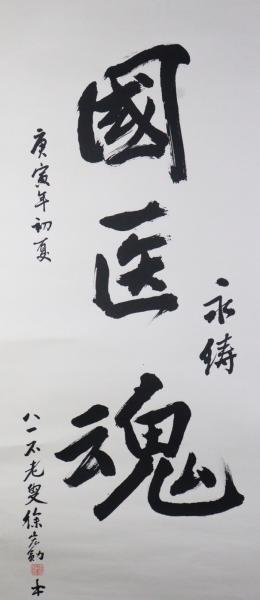 永铸
國医魂
庚寅年初夏
八一不老叟徐